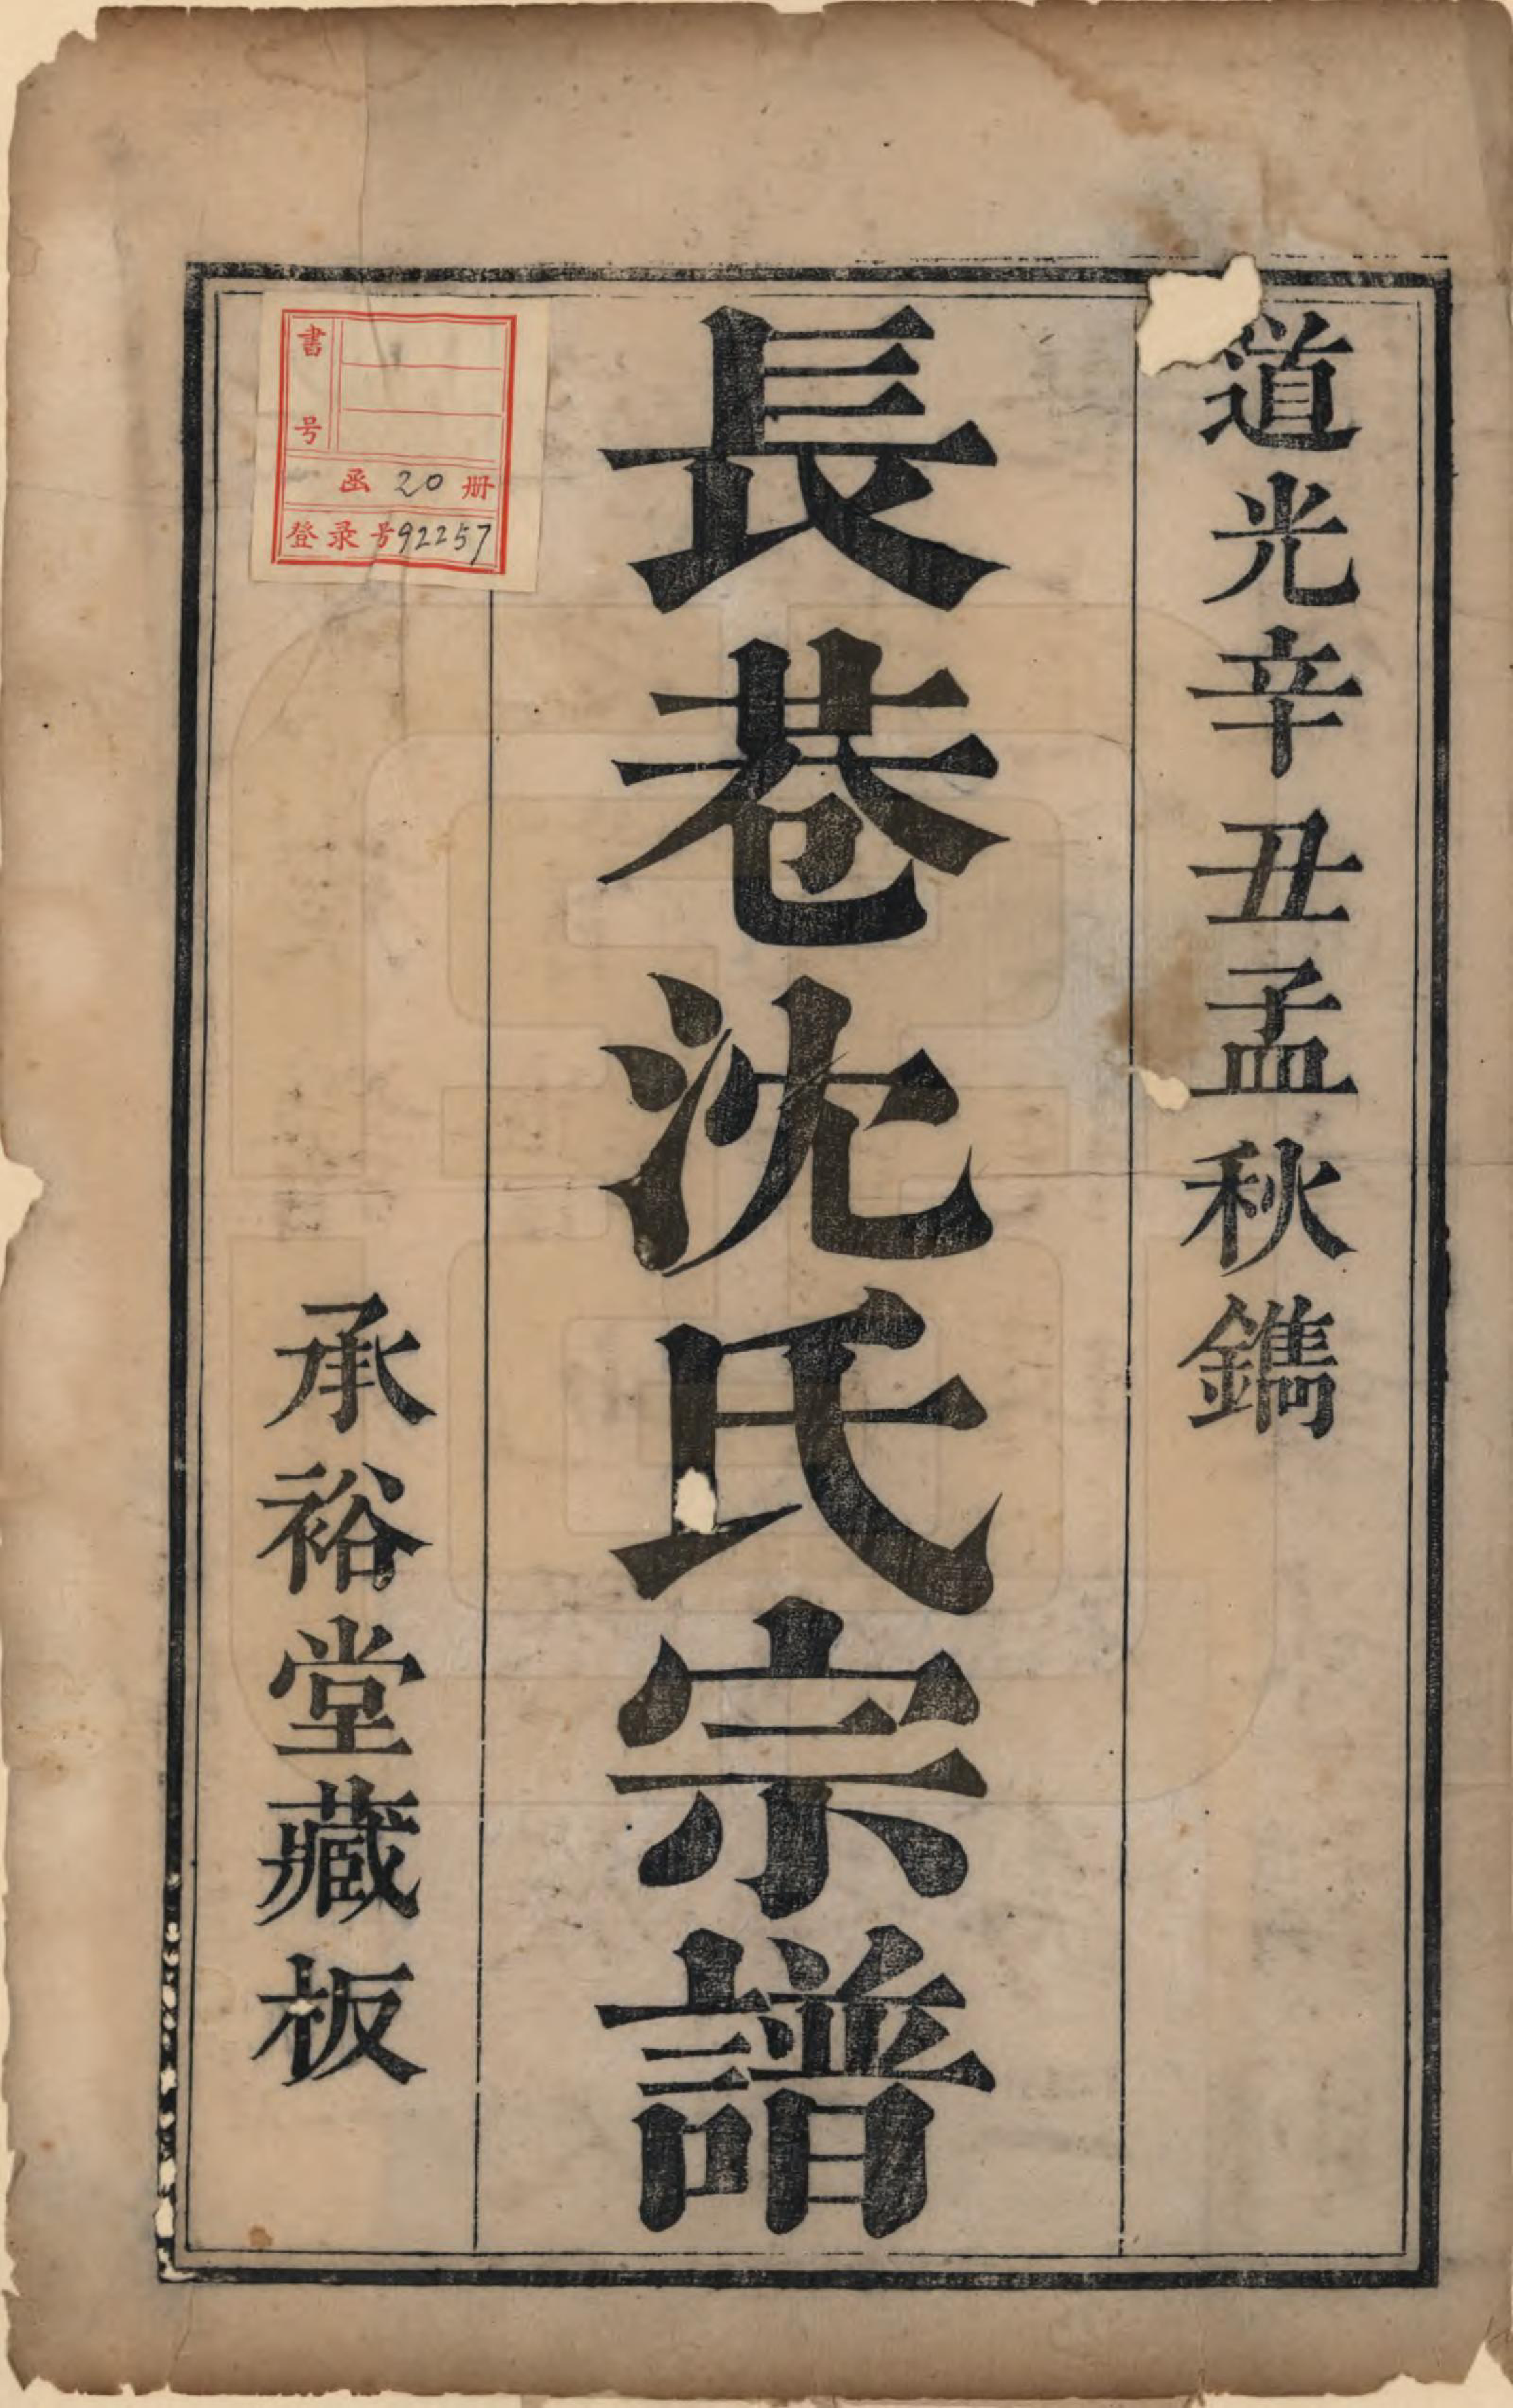 道光辛丑孟秋鐫
長巷沈氏宗譜
承裕堂藏板
書号
函 20 册
登录号92257